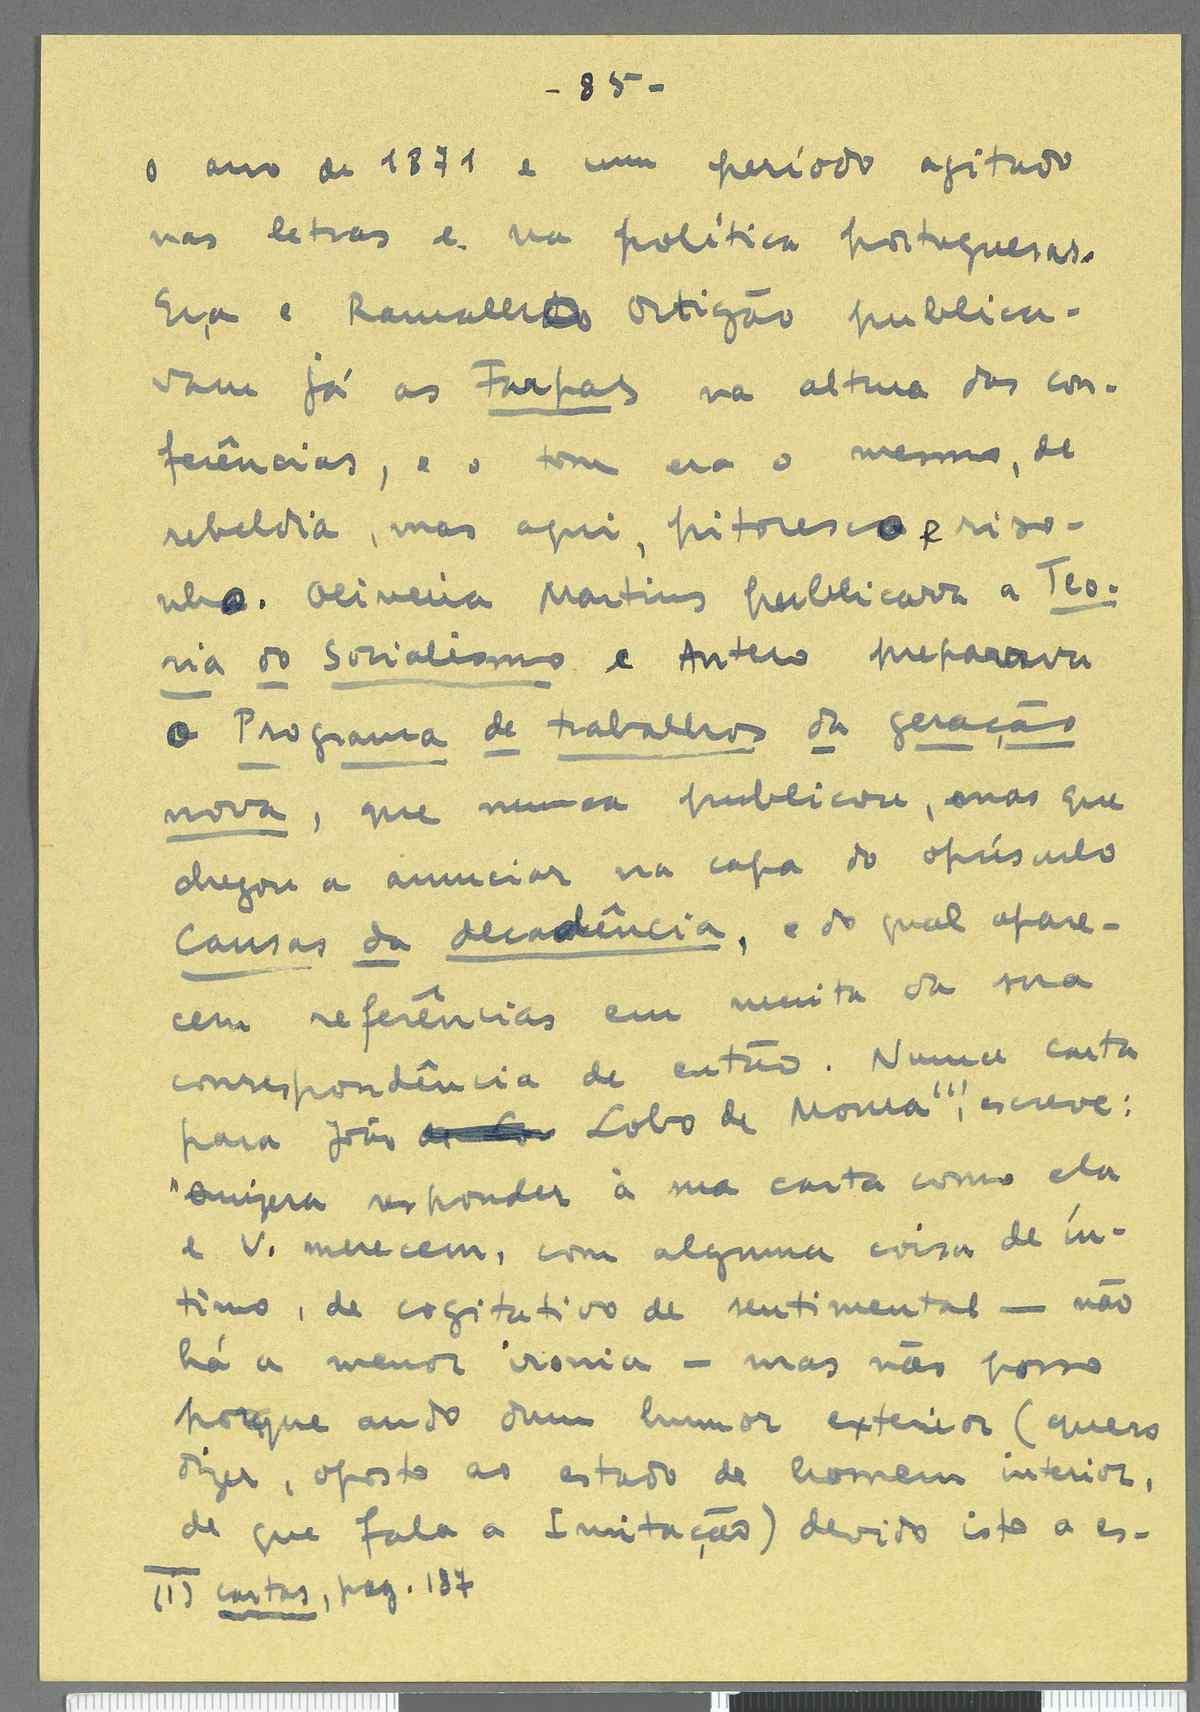 - 85 -
O ano de 1871 é um período agitado
nas letras e na política portuguesas.
Eça e Ramalho Ortigão publica-
vam já as Farpas na altura das con-
ferências, e o tom era o mesmo, de
rebeldia, mas aqui, pitoresco e riso-
nho. Oliveira Martins publicava a Teo-
ria do Socialismo e Antero preparava
o Programa de trabalhos da geração
nova, que nunca publicou, mas que
chegou a anunciar na capa do opúsculo
Causas da decadência, e do qual apare-
cem referências em muita da sua
correspondência de então. Numa carta
para João Lobo de Moura (1), escreve:
"Quizera responder à sua carta como ela
e V. merecem, com alguma coisa de ín-
timo, de cogitativo de sentimental — não
há a menor ironia — mas não posso
porque ando dum humor exterior (quero
dizer, oposto ao estado de homem interior,
de que fala a Imitação) devido isto a es-
(1) Cartas, pag. 187